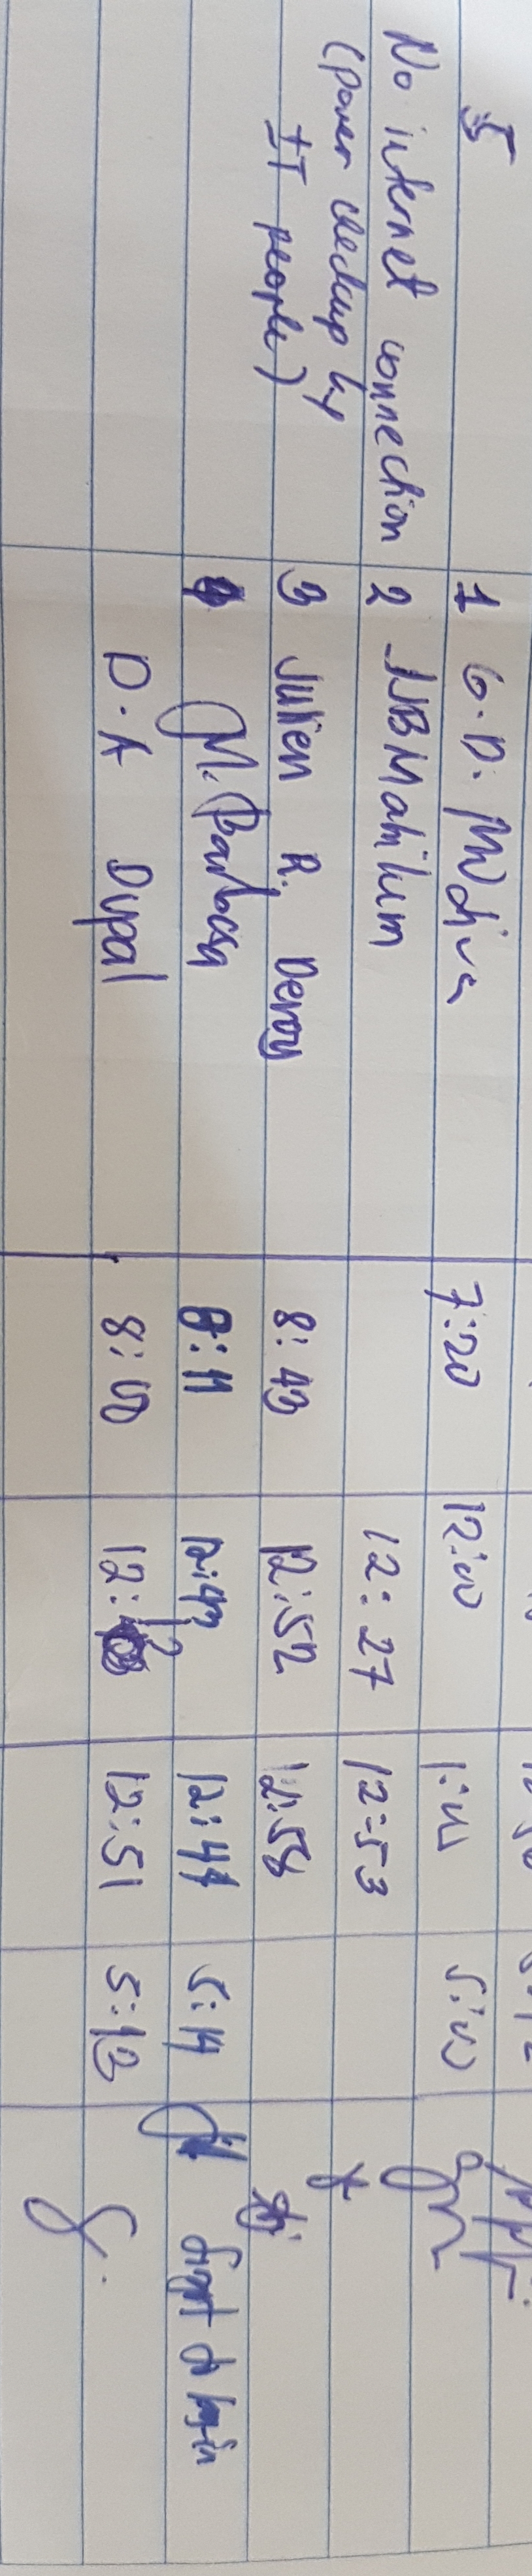 5
No internet connection
(power checkup by
IT people)
1 G.D. 7:20 12:00 1:00 5:00
2 JNBMahilum 12:27 12:53
3 Julien R. Deroy 8:43 12:52 12:58
4 M. Barbosa 8:11 12:43 12:44 5:14 forgot to login
D.A Dupal 8:00 12: 12:51 5:13